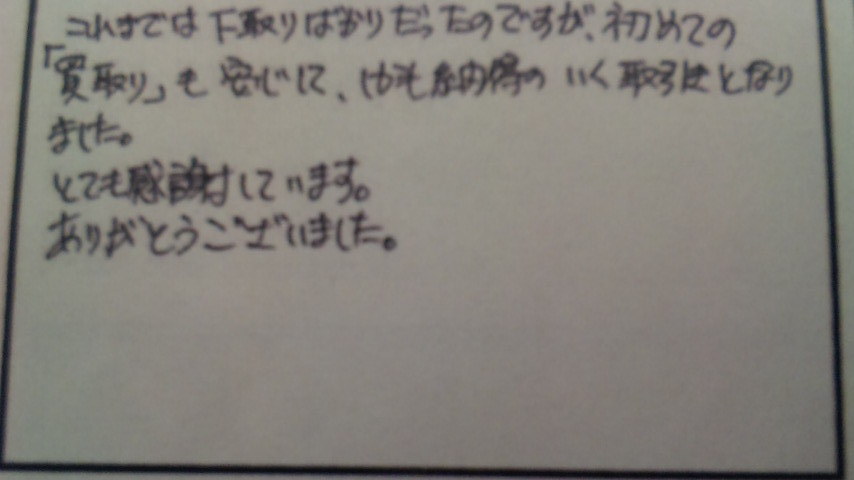 これまでは下取りばかりだったのですが、初めての
「買取り」も安心して、しかも納得のいく取引きとなり
ました。
とても感謝しています。
ありがとうございました。